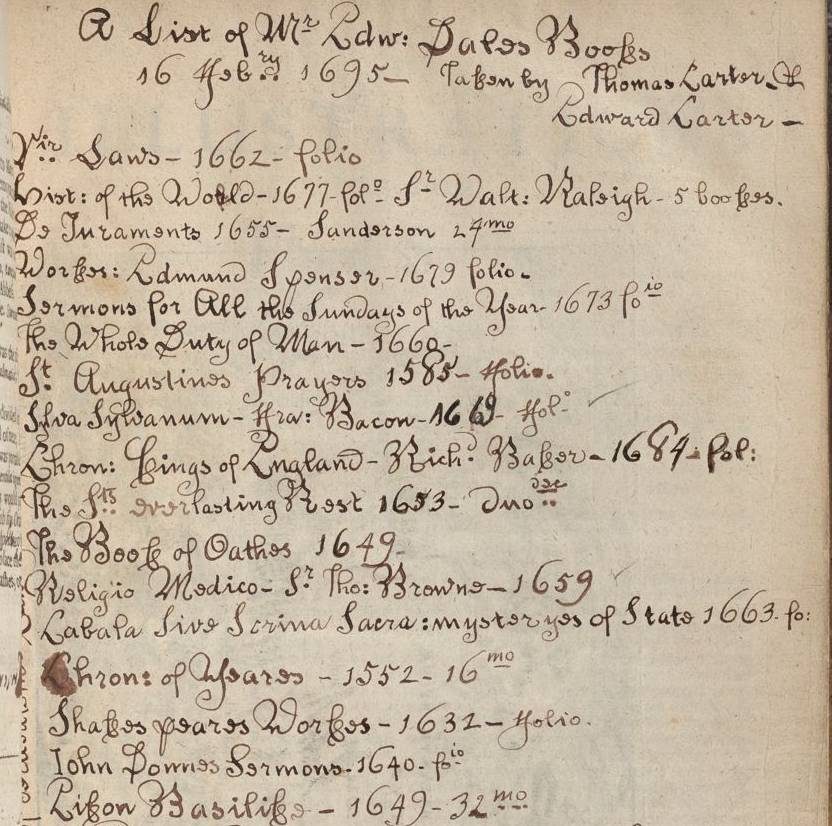 A List of Mr Edw: Dales Books
16 ffebry 1695- Taken by Thomas Carter &
Edward Carter -
Vir Laws - 1662 - folio
Hist: of the World - 1677 - folo Sr Walt: Raleigh - 5 bookes.
De Juraments 1655 - Sanderson 24mo
Workes: Edmund Spenser - 1679 folio -
Sermons for All the Sundays of the Year - 1673 foio
The Whole Duty of Man - 1660 -
St Augustines Prayers 1585 - ffolio.
Silva Sylvanum - ffra: Bacon - 1669 - ffolo
Chron: Kings of England - Richd Baker - 1684 - fol:
The Sts everlasting Rest 1653 - Duodec
The Book of Oathes 1649 -
Religio Medico - Sr Tho: Browne - 1659
Cabala Sive Scrina Sacra: mysteryes of State 1663. fo:
Chron: of Yeares - 1552 - 16mo
Shakespeares Workes - 1632 - ffolio.
John Donnes Sermons - 1640 - foio
Eikon Basilike - 1649 - 32mo